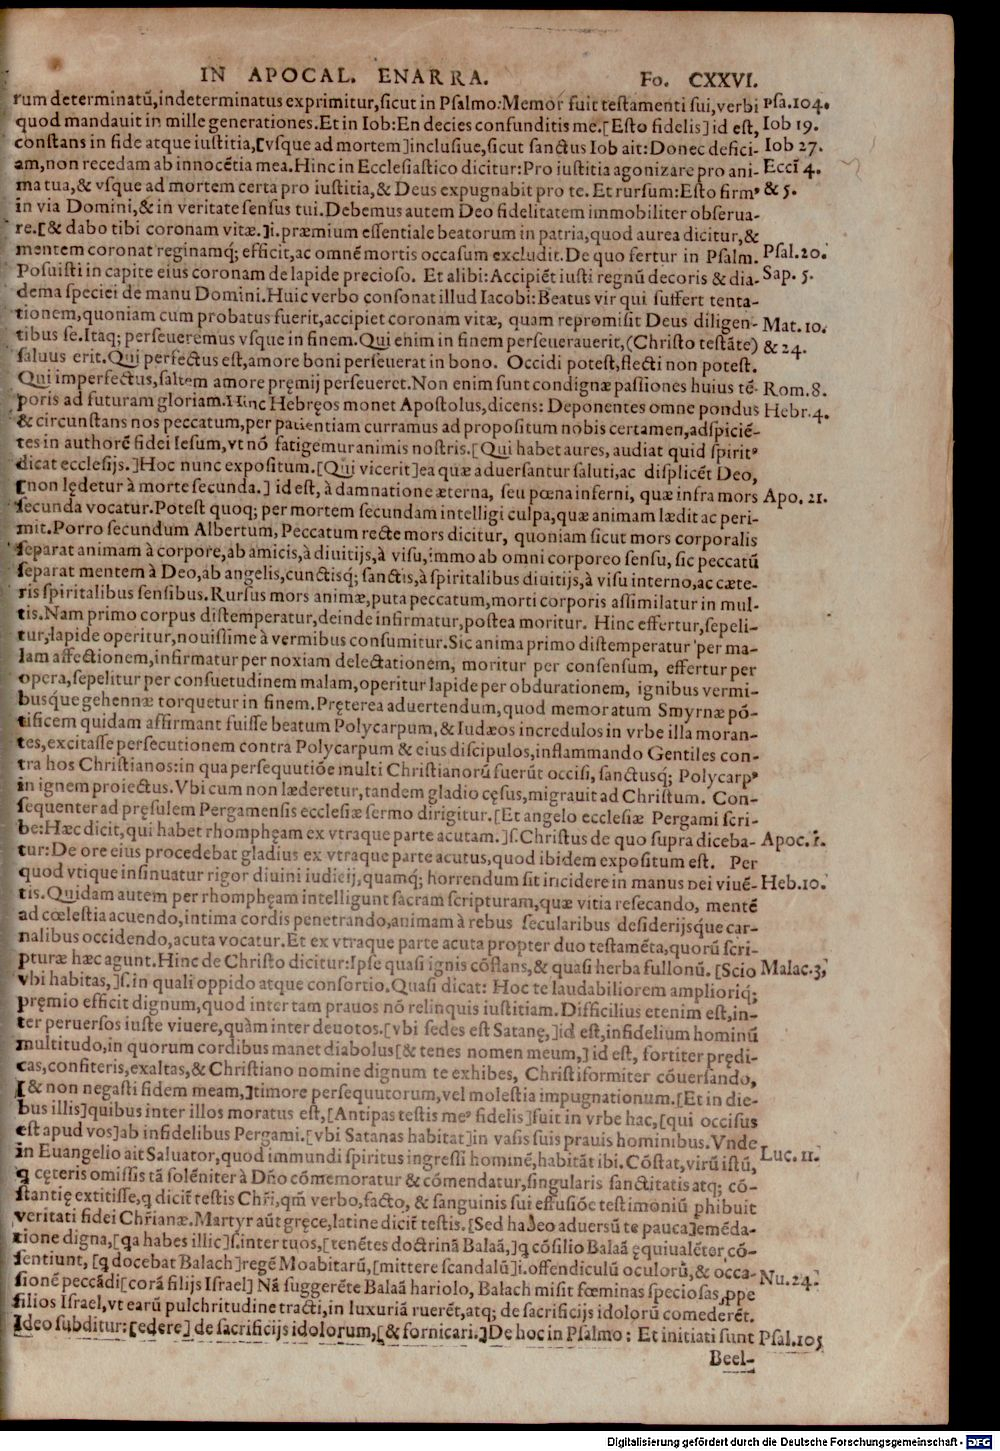 IN APOCAL. ENARRA. Fo. CXXVI.
rum determinatū,indeterminatus exprimitur,sicut in Psalmo:Memor fuit testamenti sui,verbi Psa.104.
quod mandauit in mille generationes.Et in Iob:En decies confunditis me.[Esto fidelis]id est, Iob 19.
constans in fide atque iustitia,[vsque ad mortem]inclusiue,sicut sanctus Iob ait:Donec defici- Iob 27.
am,non recedam ab innocētia mea.Hinc in Ecclesiastico dicitur:Pro iustitia agonizare pro ani- Eccī 4.
ma tua,& vsque ad mortem certa pro iustitia,& Deus expugnabit pro te.Et rursum:Esto firmꝰ & 5.
in via Domini,& in veritate sensus tui.Debemus autem Deo fidelitatem immobiliter obserua-
re.[& dabo tibi coronam vitæ.]i.præmium essentiale beatorum in patria,quod aurea dicitur,&
mentem coronat reginamq; efficit,ac omnē mortis occasum excludit.De quo fertur in Psalm. Psal.20.
Posuisti in capite eius coronam de lapide precioso. Et alibi:Accipiēt iusti regnū decoris & dia- Sap. 5.
dema speciei de manu Domini.Huic verbo consonat illud Iacobi:Beatus vir qui suffert tenta-
tionem,quoniam cum probatus fuerit,accipiet coronam vitæ, quam repromisit Deus diligen- Mat. 10.
tibus se.Itaq; perseueremus vsque in finem.Qui enim in finem perseuerauerit,(Christo testāte) & 24.
saluus erit.Qui perfectus est,amore boni perseuerat in bono. Occidi potest,flecti non potest.
Qui imperfectus,saltem amore pręmij perseueret.Non enim sunt condignæ passiones huius tē- Rom.8.
poris ad futuram gloriam.Hinc Hebręos monet Apostolus,dicens: Deponentes omne pondus Hebr.4.
& circunstans nos peccatum,per patientiam curramus ad propositum nobis certamen,adspiciē-
tes in authorē fidei Iesum,vt nō fatigemur animis nostris.[Qui habet aures, audiat quid spiritꝰ
dicat ecclesijs.]Hoc nunc expositum.[Qui vicerit]ea quæ aduersantur saluti,ac displicēt Deo,
[non lędetur à morte secunda.] id est, à damnatione æterna, seu pœna inferni, quæ infra mors Apo. 21.
secunda vocatur.Potest quoq; per mortem secundam intelligi culpa,quæ animam lædit ac peri-
mit.Porro secundum Albertum, Peccatum recte mors dicitur, quoniam sicut mors corporalis
separat animam à corpore,ab amicis,à diuitijs,à visu,immo ab omni corporeo sensu, sic peccatū
separat mentem à Deo,ab angelis,cunctisq; sanctis,à spiritalibus diuitijs,à visu interno,ac cæte-
ris spiritalibus sensibus.Rursus mors animæ,puta peccatum,morti corporis assimilatur in mul-
tis.Nam primo corpus distemperatur,deinde infirmatur,postea moritur. Hinc effertur,sepeli-
tur,lapide operitur,nouissime à vermibus consumitur.Sic anima primo distemperatur per ma-
lam affectionem,infirmatur per noxiam delectationem, moritur per consensum, effertur per
opera,sepelitur per consuetudinem malam,operitur lapide per obdurationem, ignibus vermi-
busque gehennæ torquetur in finem.Pręterea aduertendum,quod memoratum Smyrnæ pō-
tificem quidam affirmant fuisse beatum Polycarpum,& Iudæos incredulos in vrbe illa moran-
tes,excitasse persecutionem contra Polycarpum & eius discipulos,inflammando Gentiles con-
tra hos Christianos:in qua persequutiōe multi Christianorū fuerūt occisi, sanctusq; Polycarpꝰ
in ignem proiectus.Vbi cum non læderetur,tandem gladio cęsus,migrauit ad Christum. Con-
sequenter ad pręsulem Pergamensis ecclesiæ sermo dirigitur.[Et angelo ecclesiæ Pergami scri-
be:Hæc dicit,qui habet rhomphęam ex vtraque parte acutam.]s.Christus de quo supra diceba- Apoc. 1.
tur:De ore eius procedebat gladius ex vtraque parte acutus,quod ibidem expositum est. Per
quod vtique insinuatur rigor diuini iudicij,quamq; horrendum sit incidere in manus Dei viuē- Heb.10.
tis.Quidam autem per rhomphęam intelligunt sacram scripturam,quæ vitia resecando, mentē
ad cœlestia acuendo,intima cordis penetrando,animam à rebus secularibus desiderijsque car-
nalibus occidendo,acuta vocatur.Et ex vtraque parte acuta propter duo testamēta,quorū scri-
pturæ hæc agunt.Hinc de Christo dicitur:Ipse quasi ignis cōflans,& quasi herba fullonū. [Scio Malac.3.
vbi habitas,]s.in quali oppido atque consortio.Quasi dicat: Hoc te laudabiliorem ampliorīq;
pręmio efficit dignum,quod inter tam prauos nō relinquis iustitiam.Difficilius etenim est,in-
ter peruersos iuste viuere,quàm inter deuotos.[vbi sedes est Satanę,]id est,infidelium hominū
multitudo,in quorum cordibus manet diabolus[& tenes nomen meum,] id est, fortiter prędi-
cas,confiteris,exaltas,& Christiano nomine dignum te exhibes, Christiformiter cōuersando,
[& non negasti fidem meam,]timore persequutorum,vel molestia impugnationum.[Et in die-
bus illis]quibus inter illos moratus est,[Antipas testis meꝰ fidelis]fuit in vrbe hac,[qui occisus
est apud vos]ab infidelibus Pergami.[vbi Satanas habitat]in vasis suis prauis hominibus.Vnde
in Euangelio ait Saluator,quod immundi spiritus ingressi hominē,habitāt ibi. Cōstat,virū istū, Luc. 11.
q cęteris omissis tā solēniter à Dño cōmemoratur & cōmendatur,singularis sanctitatis atq; cō-
stantię extitisse,q dicit̄ testis Chr̄i,qm̄ verbo,facto, & sanguinis sui effusiōe testimoniū phibuit
veritati fidei Chr̄ianæ.Martyr aūt gręce,latine dicit̄ testis.[Sed habeo aduersū te pauca]emēda-
tione digna,[qa habes illic]s.inter tuos,[tenētes doctrinā Balaā,]q cōsilio Balaā ęquiualēter cō-
sentiunt, [q docebat Balach]regē Moabitarū,[mittere scandalū]i.offendiculū oculorū,& occa-
sionē peccādi[corā filijs Israel] Nā suggerēte Balaā hariolo, Balach misit fœminas speciosas,ppe Nu.24.
filios Israel,vt earū pulchritudine tracti,in luxuriā ruerēt,atq; de sacrificijs idolorū comederēt.
Ideo subditur:[edere] de sacrificijs idolorum,[& fornicari.]De hoc in Psalmo: Et initiati sunt Psal.105
Beel-
Digitalisierung gefördert durch die Deutsche Forschungsgemeinschaft - DFG